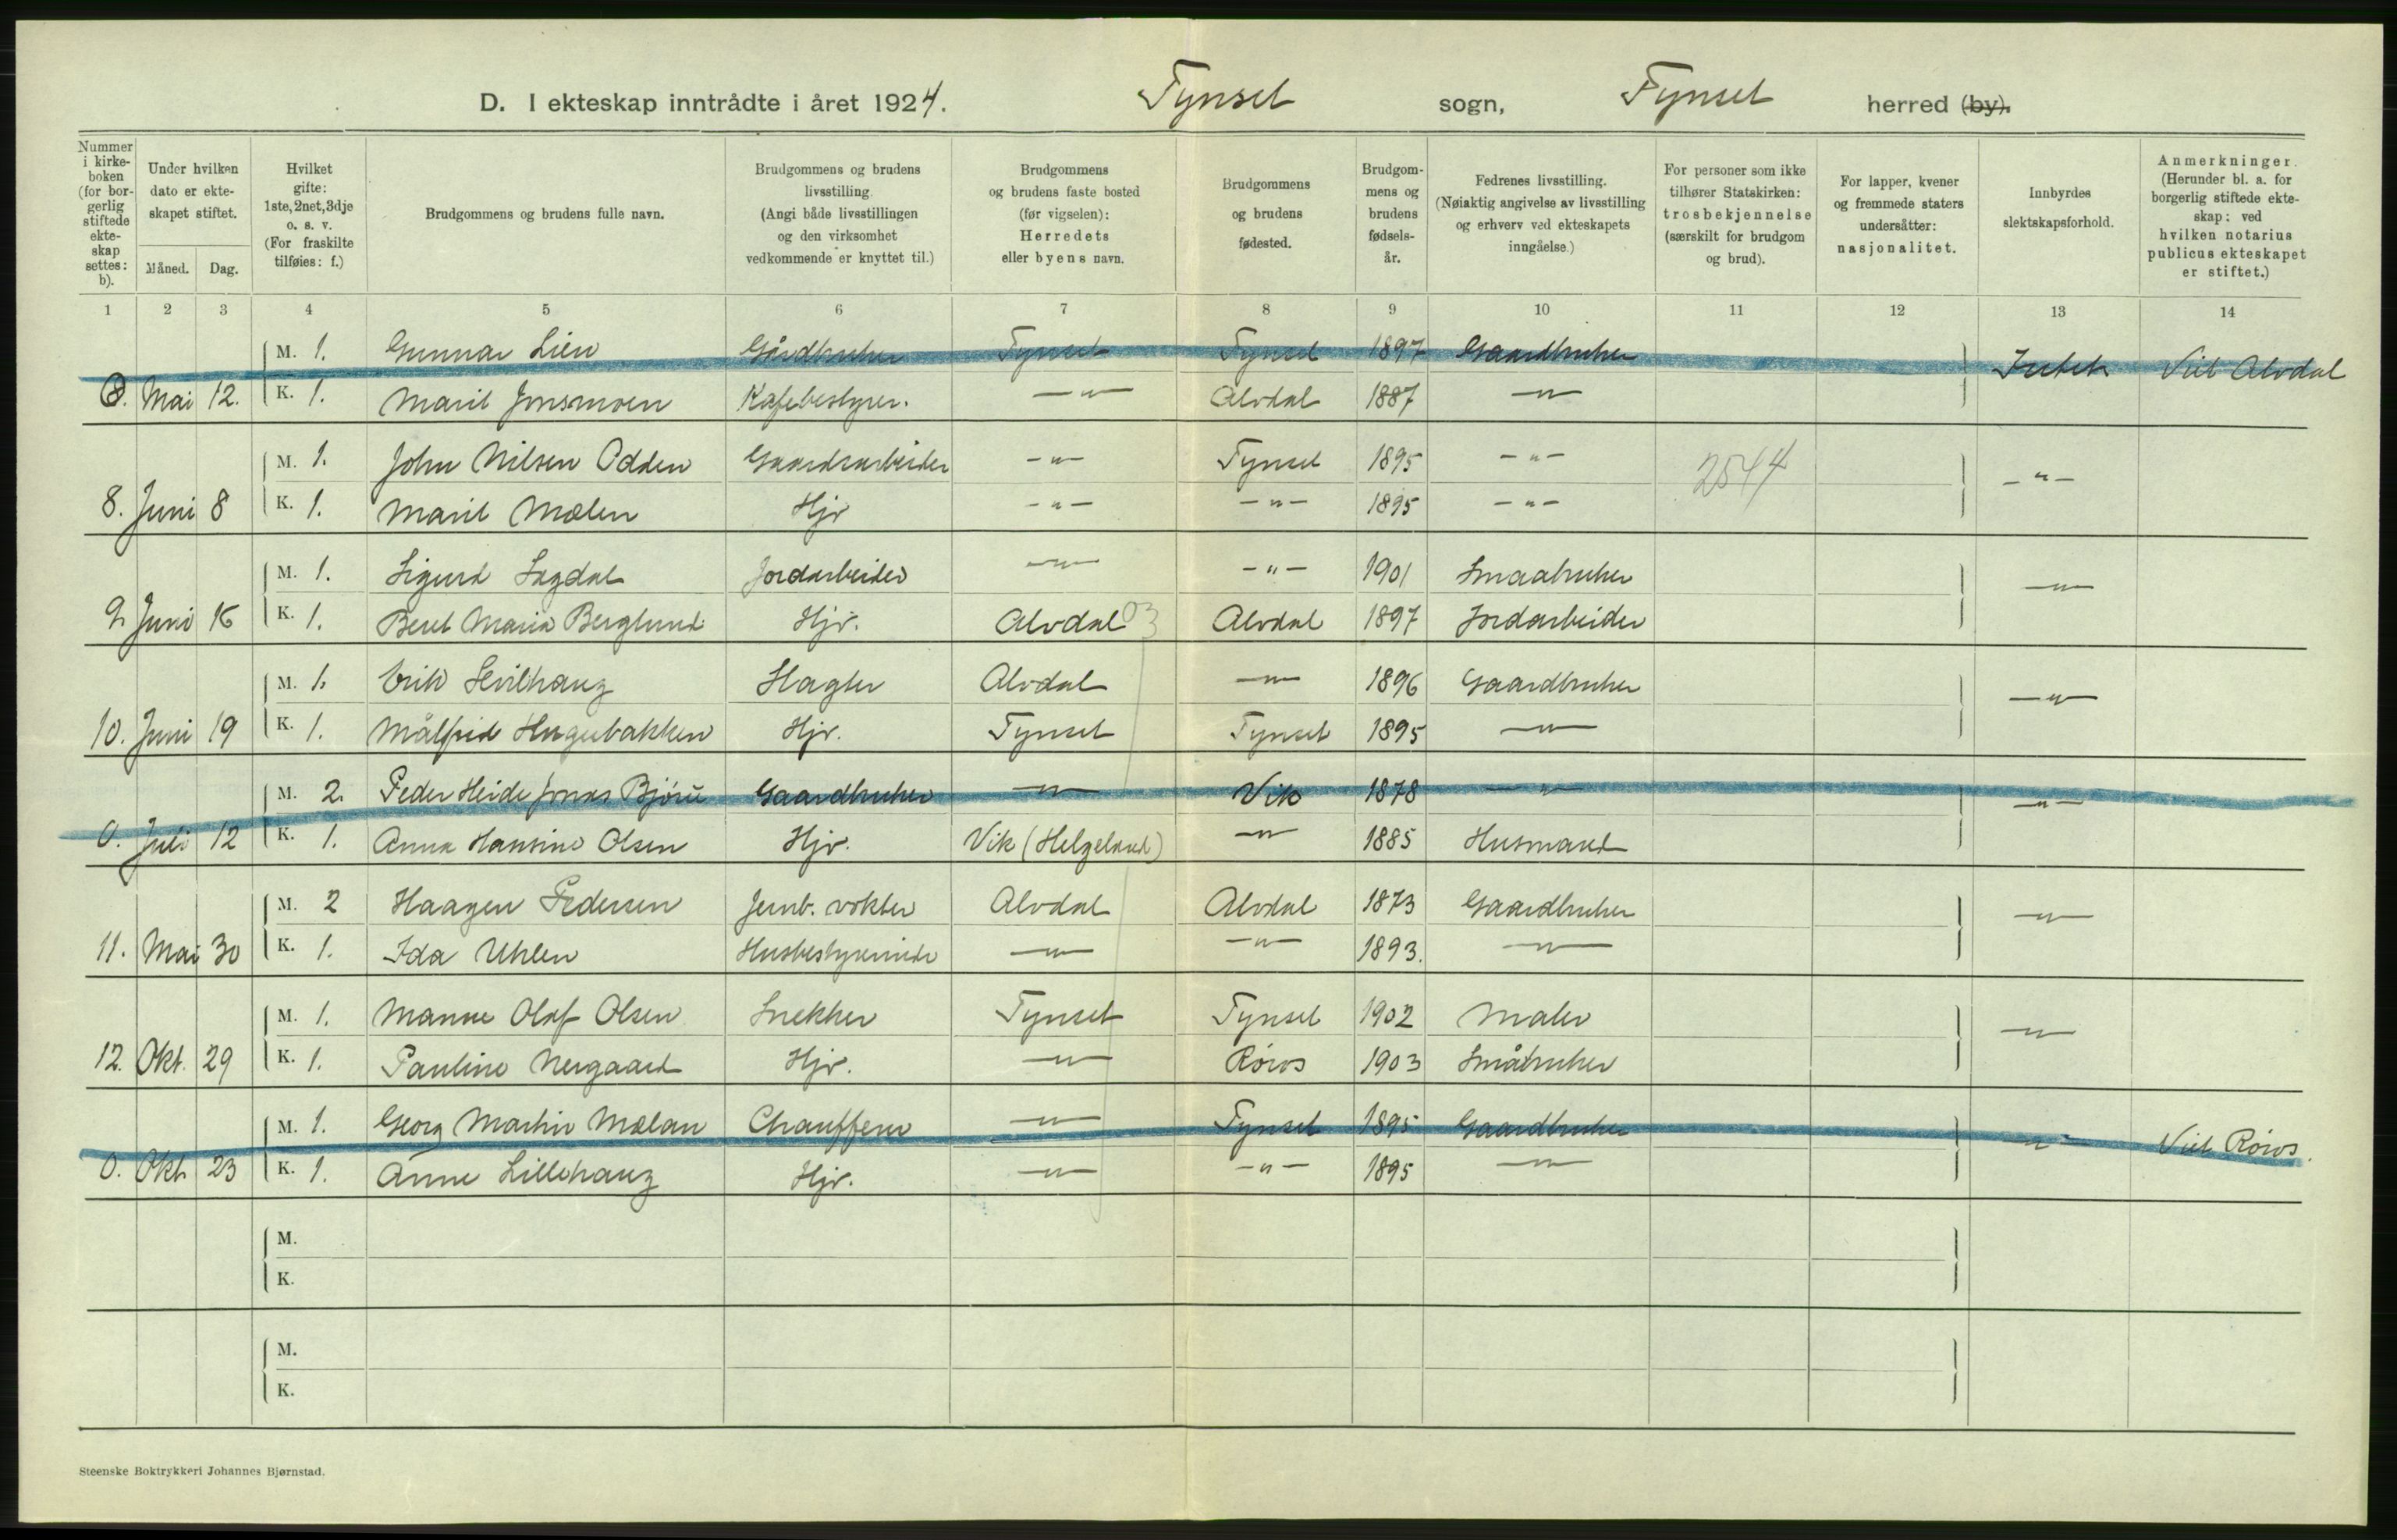 D. I ekteskap inntrådte i året 1924. Tynset sogn, Tynset herred (by).
Nummer i kirke-boken (for bor-gerlig stiftede ekte-skap settes: b).
Under hvilken dato er ekte-skapet stiftet.
Måned. Dag.
Hvilket gifte: 1ste, 2net, 3dje o. s. v. (For fraskilte tilføies: f.)
Brudgommens og brudens fulle navn.
Brudgommens og brudens livsstilling. (Angi både livsstillingen og den virksomhet vedkommende er knyttet til.)
Brudgommens og brudens faste bosted (før vigselen): Herredets eller byens navn.
Brudgommens og brudens fødested.
Brudgom-mens og brudens fødsels-år.
Fedrenes livsstilling. (Nøiaktig angivelse av livsstilling og erhverv ved ekteskapets inngåelse.)
For personer som ikke tilhører Statskirken: trosbekjennelse (særskilt for brudgom og brud).
For lapper, kvener og fremmede staters undersåtter: nasjonalitet.
Innbyrdes slektskapsforhold.
Anmerkninger. (Herunder bl. a. for borgerlig stiftede ekte-skap: ved hvilken notarius publicus ekteskapet er stiftet.)
1 2 3 4 5 6 7 8 9 10 11 12 13 14
M. 1. Gunnar Lien Gårdbruker Tynset Tynset 1897 Gaardbruker Intet Viet Alvdal
0. Mai 12. K. 1. Marit Jonsmoen Kafebestyrer. —"— Alvdal 1887 —"—
M. 1. John Nilsen Odden Gaardsarbeider -"- Tynset 1895 -"- 2544 -"-
8. Juni 8 K. 1. Marit Mælen Hjv -"- -"- 1895 -"-
M. 1. Sigurd Sagdal Jordarbeider —"— -"- 1901 Smaabruker —"—
9. Juni 15 K. 1. Beret Maria Berglund Hjv. Alvdal 03 Alvdal 1897 Jordarbeider
M. 1. Erik Hvilhaug Slagter Alvdal —"— 1896 Gaardbruker —"—
10. Juni 19 K. 1. Målfrid Haugebakken Hjv. Tynset Tynset 1895 —"—
M. 2. Peder Heide Jonas Bjøru Gaardbruker —"— Vik 1878 —"— —"—
0. Juli 12 K. 1. Anna Hansine Olsen Hjv. Vik (Helgeland) —"— 1885 Husmand
M. 2 Haagen Pedersen Jernb. vokter Alvdal Alvdal 1873 Gaardbruker —"—
11. Mai 30 K. 1. Ida Uhlen Husbestyrerinde —"— —"— 1893. —"—
M. 1. Manne Olaf Olsen Snekker Tynset Tynset 1902 Maler —"—
12. Okt. 29 K. 1. Pauline Nergaard Hjv. —"— Røros 1903 Småbruker
M. 1. Georg Martin Mælan Chauffeur —"— Tynset 1895 Gaardbruker —"— Viet Røros.
0. Okt. 23 K. 1. Anne Lillehaug Hjv. —"— -"- 1895 —"—
M.
K.
M.
K.
Steenske Boktrykkeri Johannes Bjørnstad.